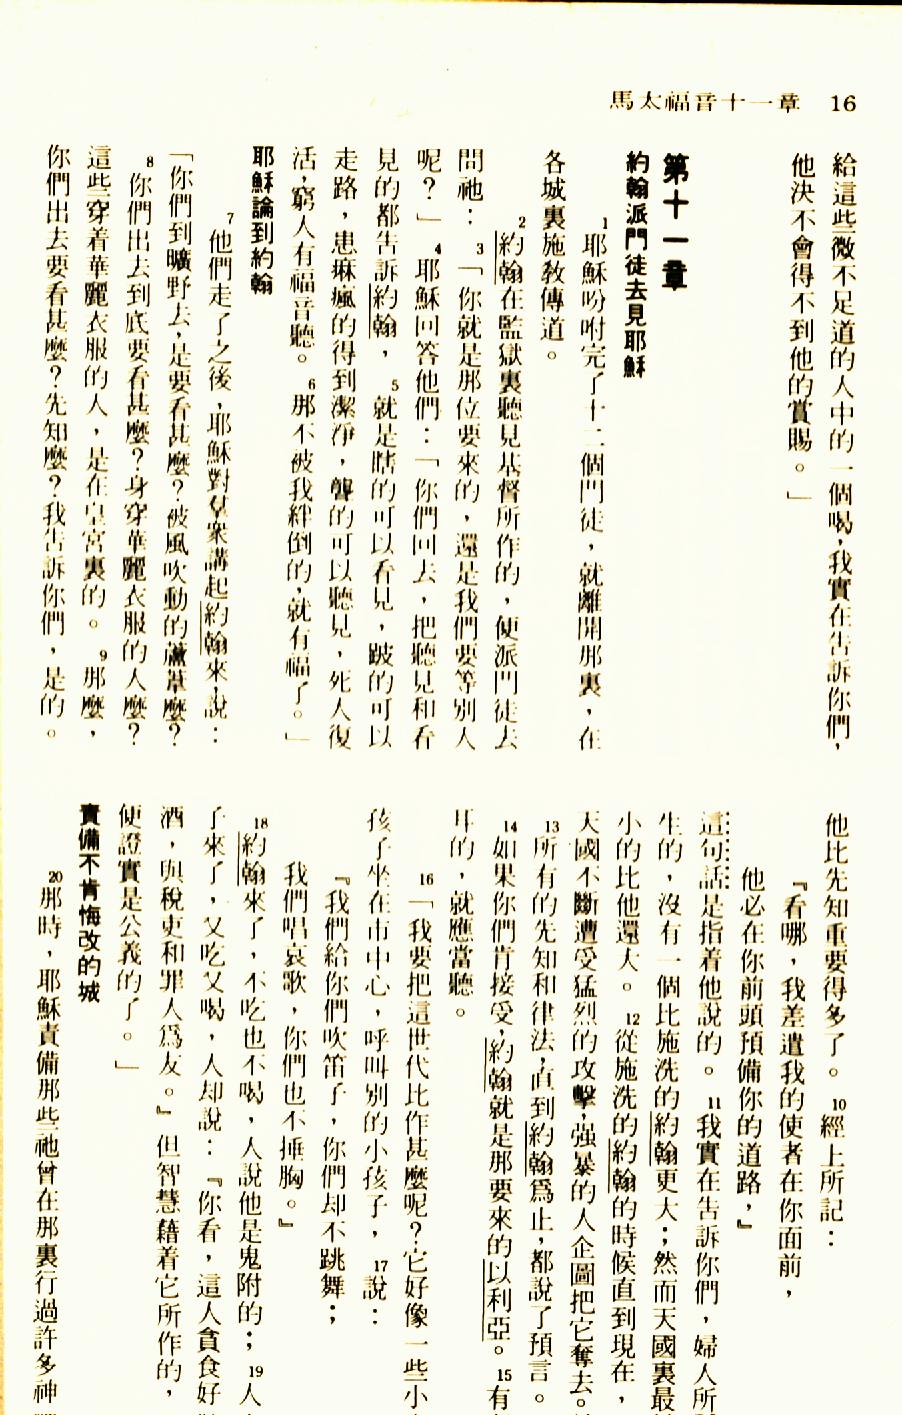 馬太福音十一章　16
給這些微不足道的人中的一個喝，我實在告訴你們，
他決不會得不到他的賞賜。」
第十一章
約翰派門徒去見耶穌
1耶穌吩咐完了十二個門徒，就離開那裏，在
各城裏施教傳道。
2約翰在監獄裏聽見基督所作的，便派門徒去
問祂：3「你就是那位要來的，還是我們要等別人
呢？」4耶穌回答他們：「你們回去，把聽見和看
見的都告訴約翰，5就是瞎的可以看見，跛的可以
走路，患痳瘋的得到潔淨，聾的可以聽見，死人復
活，窮人有福音聽。6那不被我絆倒的，就有福了。」
耶穌論到約翰
7他們走了之後，耶穌對羣衆講起約翰來，說：
「你們到曠野去，是要看甚麼？被風吹動的蘆葦麼？
8你們出去到底要看甚麼？身穿華麗衣服的人麼？
這些穿着華麗衣服的人，是在皇宮裏的。9那麼，
你們出去要看甚麼？先知麼？我告訴你們，是的。
他比先知重要得多了。10經上所記：
『看哪，我差遣我的使者在你面前，
他必在你前頭預備你的道路，』
這句話是指着他說的。11我實在告訴你們，婦人所
生的，沒有一個比施洗的約翰更大；然而天國裏最
小的比他還大。12從施洗的約翰的時候直到現在，
天國不斷遭受猛烈的攻擊，强暴的人企圖把它奪去。
13所有的先知和律法，直到約翰爲止，都說了預言。
14如果你們肯接受，約翰就是那要來的以利亞。15有
耳的，就應當聽。
16「我要把這世代比作甚麼呢？它好像一些小
孩子坐在市中心，呼叫別的小孩子，17說：
『我們給你們吹笛子，你們却不跳舞；
我們唱哀歌，你們也不捶胸。』
18約翰來了，不吃也不喝，人說他是鬼附的；19人
子來了，又吃又喝，人却說：『你看，這人貪食好
酒，與稅吏和罪人爲友。』但智慧藉着它所作的，
便證實是公義的了。」
責備不肯悔改的城
20那時，耶穌責備那些祂曾在那裏行過許多神